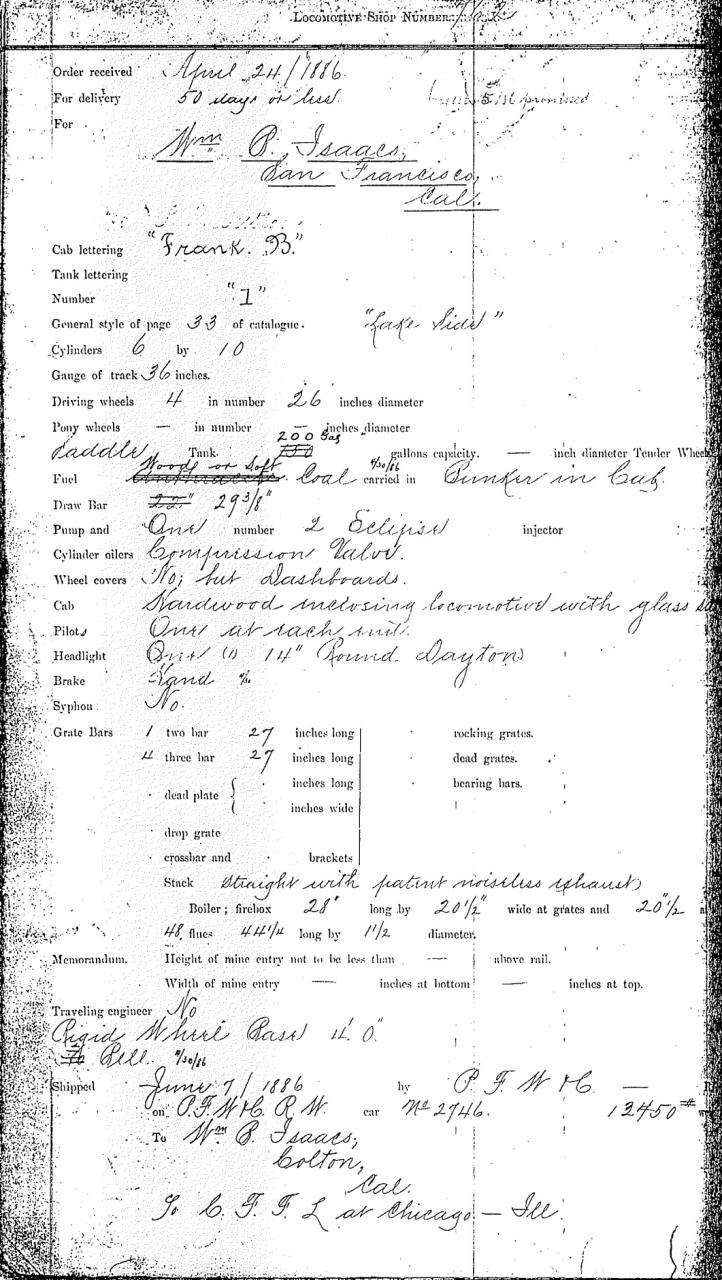 LOCOMOTIVE SHOP NUMBER
Order received April 24/1886.
For delivery 50 days or less. promised
For
Wm P. Isaacs,
San Francisco,
Cal.
Cab lettering "Frank. B."
Tank lettering
Number "1"
General style of page 33 of catalogue. "Lake Side"
Cylinders 6 by 10
Gauge of track 36 inches.
Driving wheels 4 in number 26 inches diameter
Pony wheels — in number — inches diameter
200 Gas
Saddle Tank. gallons capacity. — inch diameter Tender Wheel
Wood or Soft 4/30/86
Fuel Anthracite Coal carried in Bunker in Cab.
Draw Bar 22" 29 3/8"
Pump and One number 2 Eclipse injector
Cylinder oilers Compression Valve.
Wheel covers No; but Dashboards.
Cab Hardwood inclosing locomotive with glass
Pilots One at each end.
Headlight One (1) 14" Round Dayton
Brake Hand
Syphon No.
Grate Bars 1 two bar 27 inches long rocking grates.
4 three bar 27 inches long dead grates.
dead plate { inches long bearing bars.
inches wide
drop grate
crossbar and brackets
Stack Straight with patent noiseless exhaust
Boiler; firebox 28" long by 20 1/2" wide at grates and 20 1/2"
48 flues 44 1/4 long by 1 1/2 diameter.
Memorandum. Height of mine entry not to be less than — above rail.
Width of mine entry — inches at bottom — inches at top.
Traveling engineer No
Rigid Wheel Base 4' 0"
Bell. 4/30/86
Shipped June 7/1886 by P. F. W & C. —
on P. F. W & C. R. W. car No 2746. 12450#
To Wm P. Isaacs,
Colton,
Cal.
To C. F. F. L at Chicago — Ill.